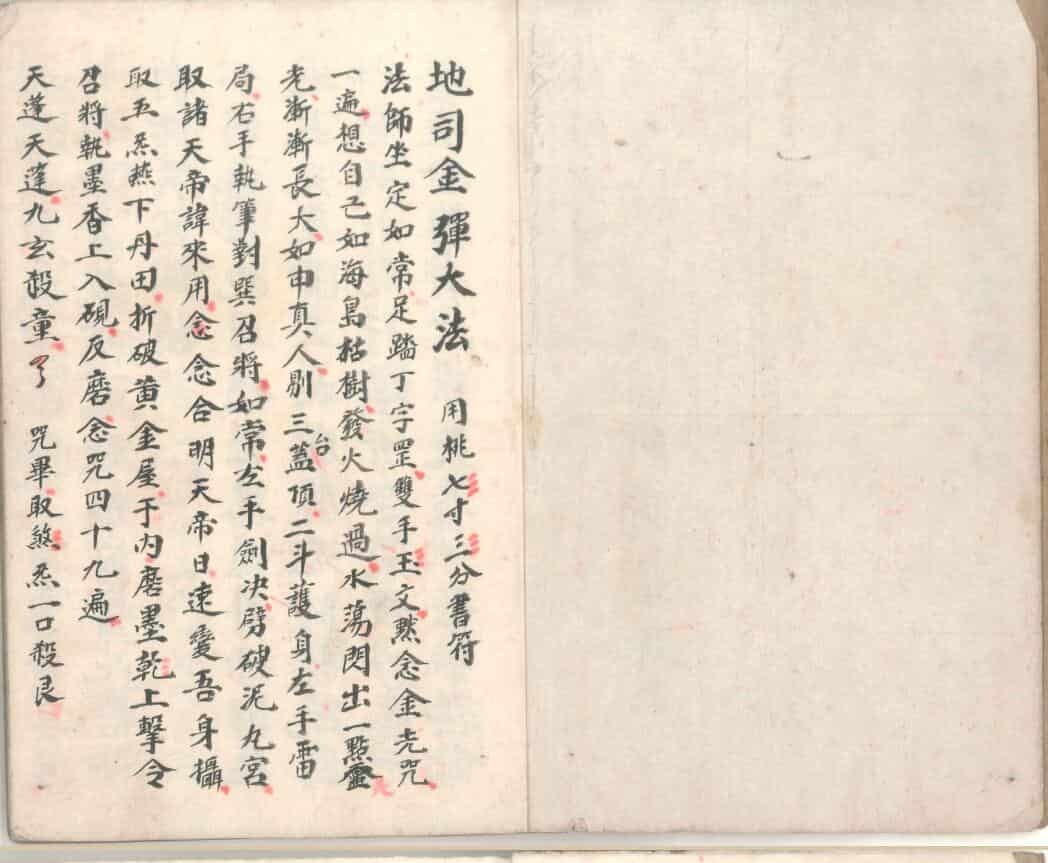 地司金彈大法 用桃七寸三分書符
法師坐定如常足踏丁字罡雙手玉文默念金光咒
一遍想自己如海島枯樹發火燒過水蕩閃出一點靈
光漸漸長大如申真人剔三台蓋頂二斗護身左手雷
局右手執筆對巽召將如常左手劍决劈破泥丸宮
取諸天帝諱來用念念合明天帝日速變吾身攝
取五炁燕下丹田折破黃金屋于内磨墨乾上擊令
召將執墨香上入硯反磨念咒四十九遍
天蓬天蓬九玄殺童了 咒畢取煞炁一口殺艮